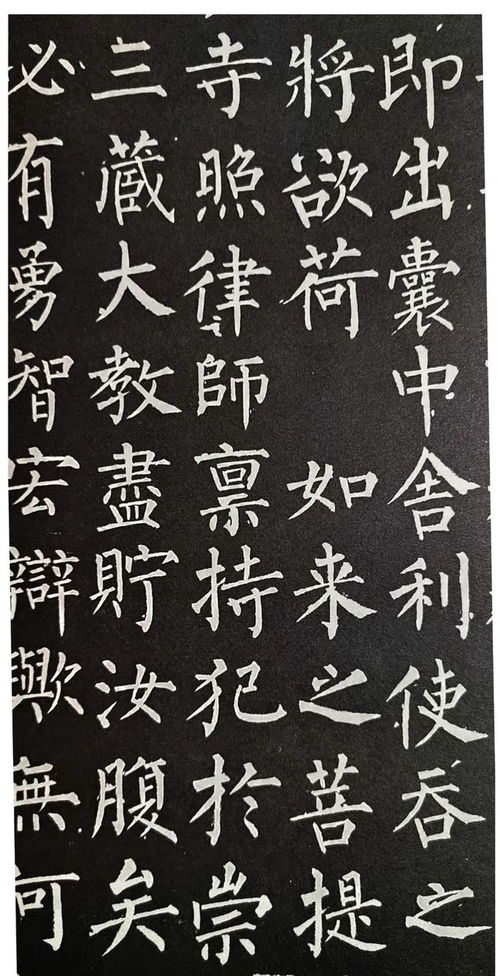 即出囊中舍利使吞之
將欲荷 如来之菩提
寺照律師禀持犯於崇
三蔵大教盡貯汝腹矣
必有勇智宏辯歟無何